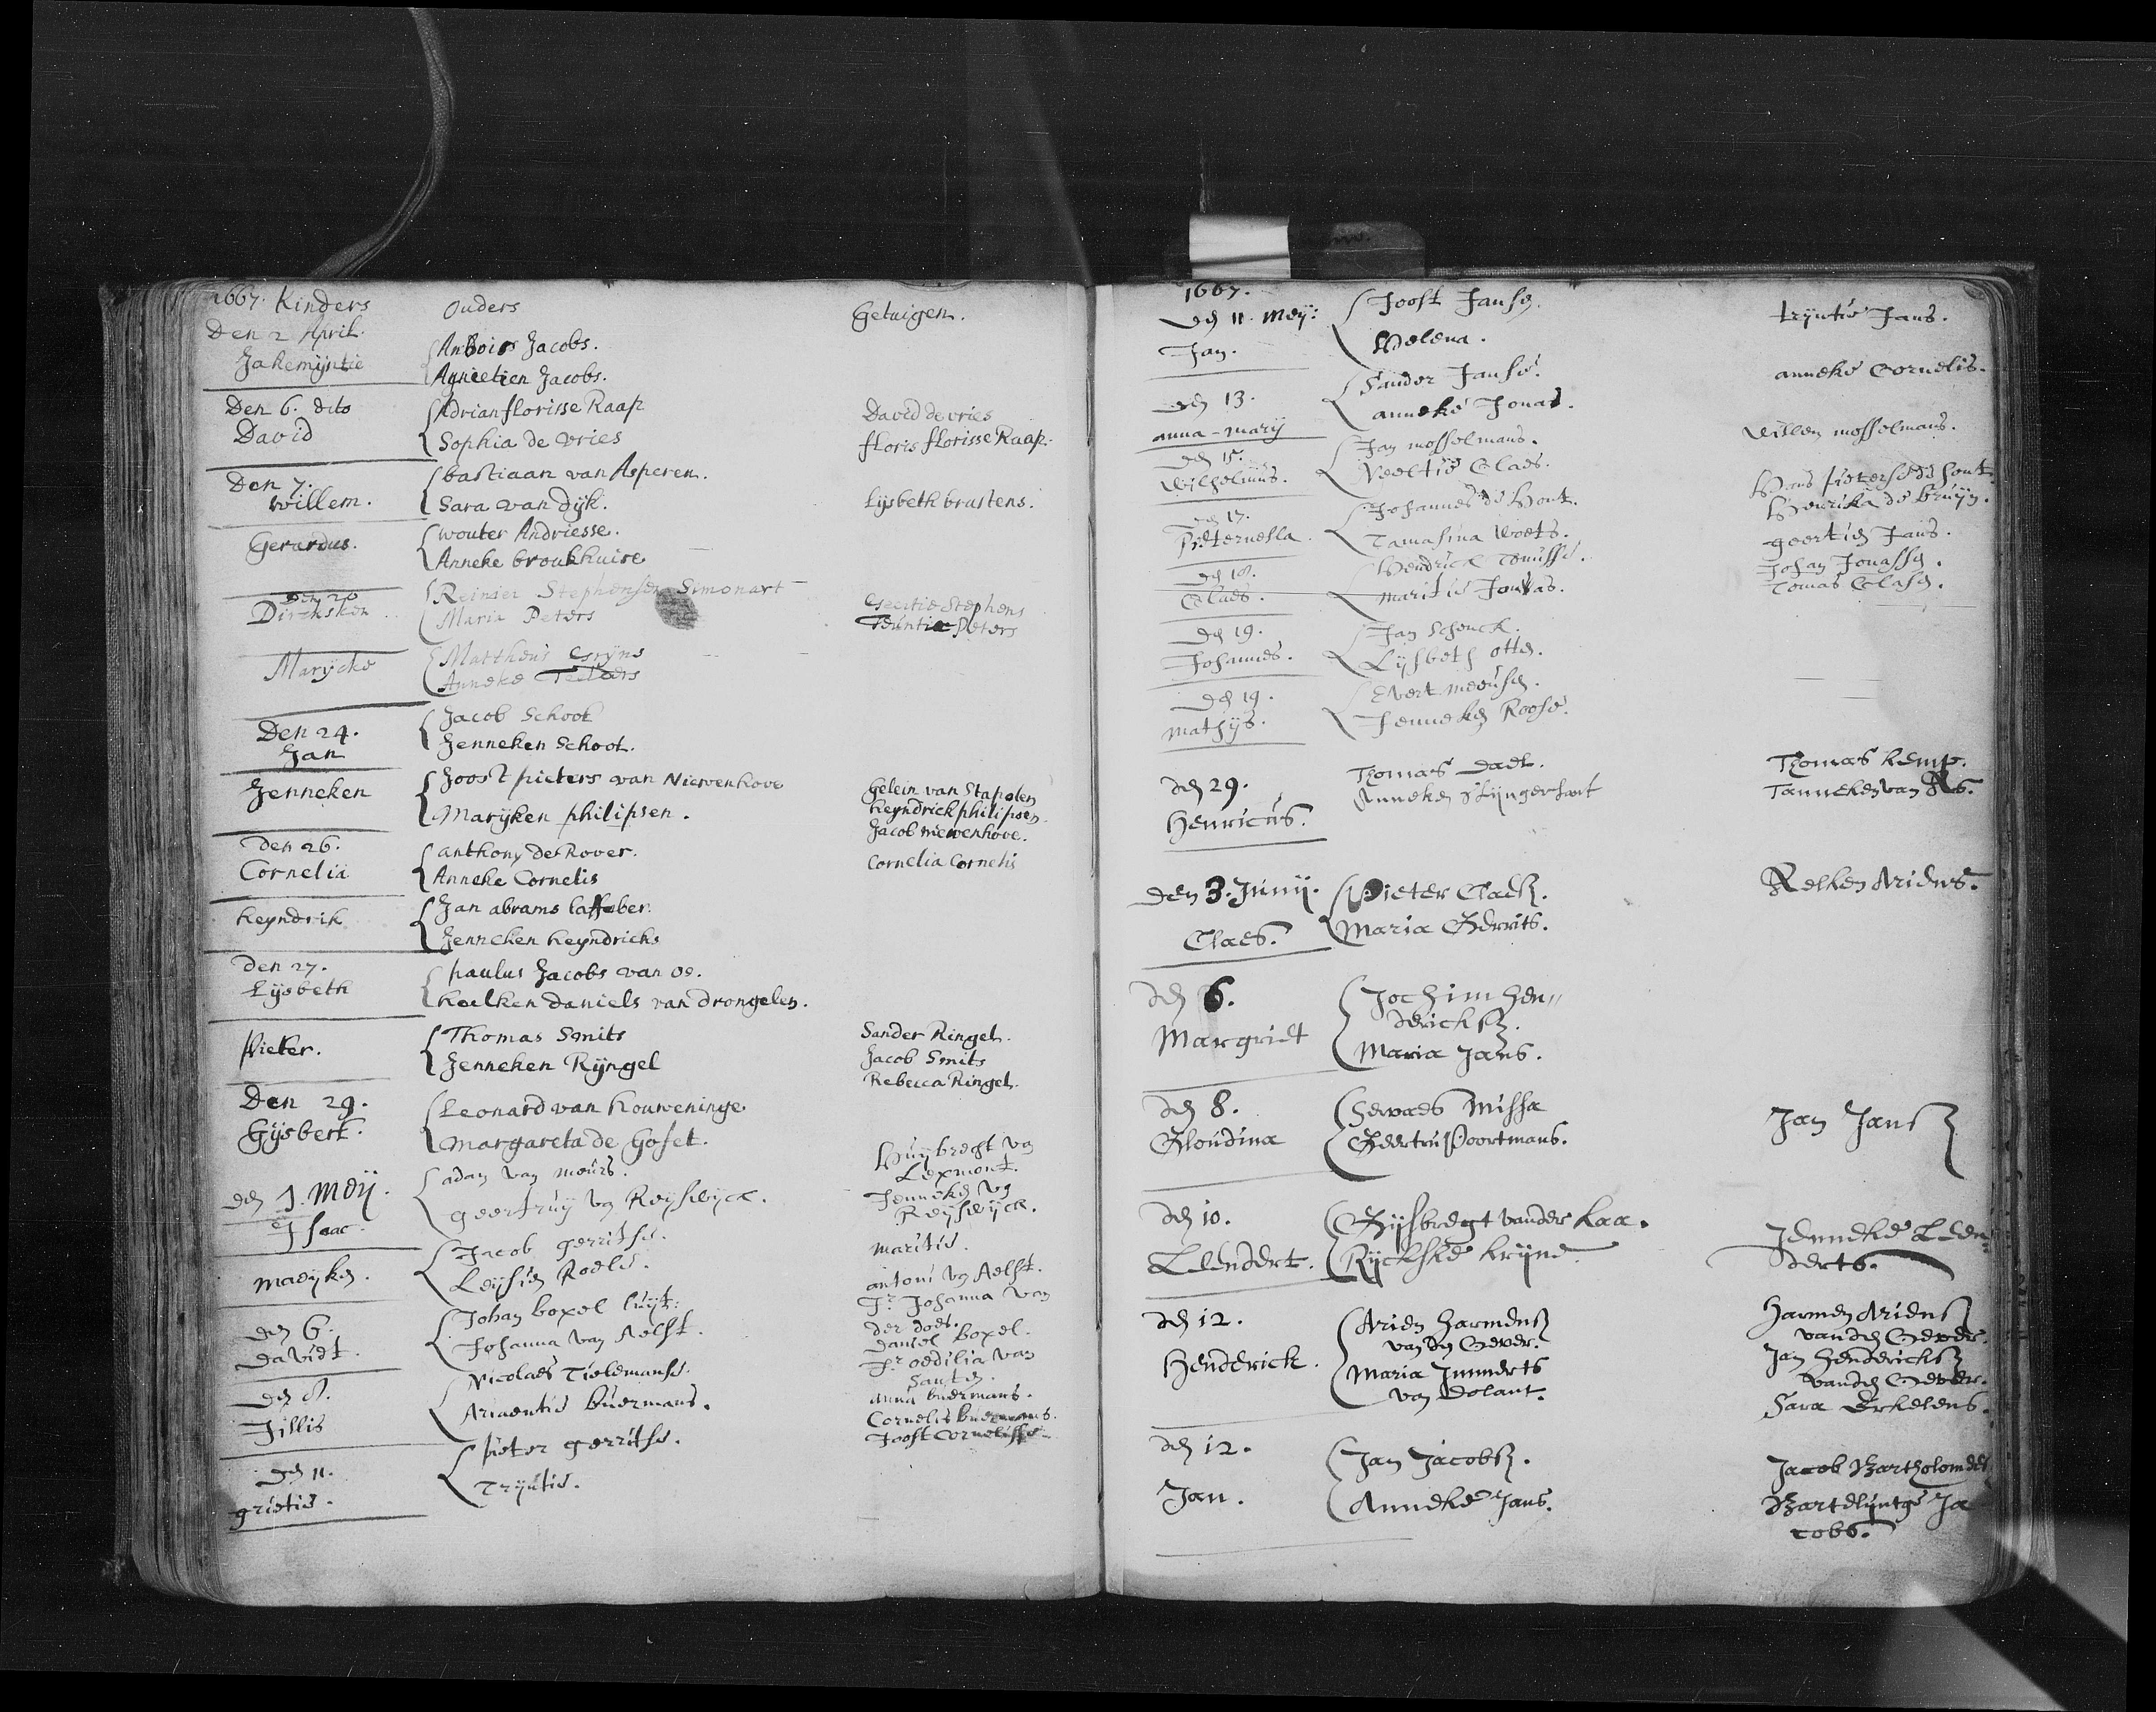 1667. Kinders Ouders Getuigen.
Den 2 April.
Jakemijntie
Jacobs.
Agnietien Jacobs.
Den 6. dito
David
Adrian florisse Raap
Sophia de vries
David de vries
floris florisse Raap.
Den 7.
willem.
bastiaan van Asperen.
Sara van dijk.
Lijsbeth brastens.
Gerardus.
wouter Andriesse.
Anneke broukhuise
Den 20
Dirksken
Reinier Stephensen Simonart
Maria Peters
Geertie Stephens
Teuntie Peters
Marijcke
Mattheus
Anneke
Den 24.
Jan
Jacob Schoot
Jenneken Schoot.
Jenneken
Joost pieters van Niewenhove
Marijken philipsen.
Gelein van Stapelen
heyndrick philipsen.
Jacob niewenhove.
den 26.
Cornelia
anthony de Rover.
Anneke Cornelis
Cornelia Cornelis
heyndrik
Jan abrams
Jenneken heyndricks
Den 27.
Lijsbeth
paulus Jacobs van os.
heelken daniels van drongelen.
Pieter.
Thomas Smits
Jenneken Rijngel
Sander Ringel.
Jacob Smits
Rebecca Ringel.
Den 29.
Gijsbert.
Leonard van houweninge
Margareta de Goset.
den 1. Meij.
Isaac.
adam van meurs.
geertruij vn Reijswijck.
Huijbrecht vn
Lexmont.
Jenneken vn
Reijswijck.
maeijken.
Jacob gerritse.
Leijsien Roels.
maritie.
den 6.
Davidt.
Johan boxel luijt:
Johanna van Aelst.
antoni vn Aelst.
Jr. Johanna van
der does.
Daniel boxel.
Jr. oedilia van
Santen.
den 8.
Jillis
Nicolaes Tielemanse.
Ariaentie buermans.
anna buermans.
Cornelis buermans.
Joost Cornelisse.
den 11.
grietie.
pieter gerritse.
Trijntie.
1667.
den 11. Meij:
Jan.
Joost Janse.
Helena.
trijntie Jans.
den 13.
anna-marij
Sander Janse.
anneke Jonas.
anneke Cornelis.
den 15.
Wilhelmus.
Jan mosselmans.
Neeltie Claes.
Willem mosselmans.
den 17.
Pieternella.
Johannes de Hont.
Tamasina Woets.
Hans pieterse de hont.
Henrika de bruijn.
den 18.
Claes.
Hendrick tonisse.
maritie Jonas.
geertien Jans.
Johan Jonassen.
Tomas Clasen.
den 19.
Johannes.
Jan Schenck.
Lijsbeth otten.
den 19.
mathijs.
Evert meeusen.
Jenneken Roose.
den 29.
Henricus.
Thomas Dael.
Anneken
Thomas kemp.
Tanneken van
den 3. Junij.
Claes.
Pieter Claesz.
Maria Gerrits.
Aelken Ariens.
den 6.
Margriet
Jochim Hen//
dericksz.
Maria Jans.
den 8.
Gloudina
Sewaes Missa
Geertruij Poortmans.
Jan Jansz
den 10.
Leendert.
Gijsbregt vander kaa.
Rijckske krijne
Jenneke Leen
derts.
den 12.
Henderick.
Arien Harmensz
van den Gever.
Maria Immerts
van Dolant.
Harmen Ariensz
vanden Gever.
Jan Hendericksz
vanden Gever.
Sara Erkelens.
den 12.
Jan.
Jan Jacobsz.
Anneke Jans.
Jacob Bartholomees
Bartelijntge Ja
cobs.